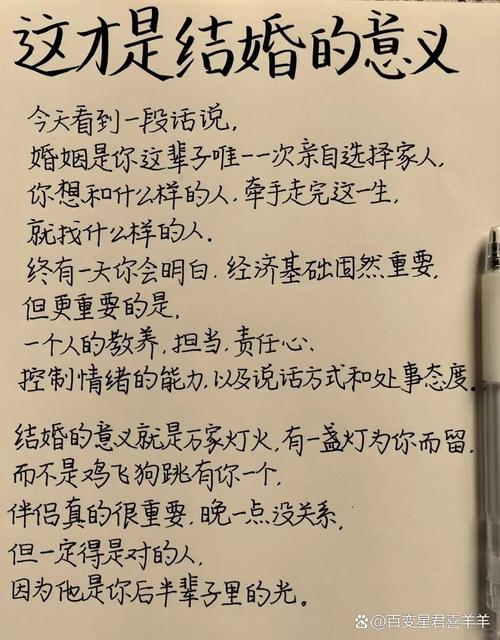 这才是结婚的意义
今天看到一段话说,
婚姻是你这辈子唯一一次亲自选择家人,
你想和什么样的人,牵手走完这一生,
就找什么样的人.
终有一天你会明白,经济基础固然重要,
但更重要的是,
一个人的教养,担当,责任心、
控制情绪的能力,以及说话方式和处事态度.
结婚的意义就是万家灯火,有一盏灯为你而留,
而不是鸡飞狗跳有你一个,
伴侣真的很重要,晚一点没关系,
但一定得是对的人,
因为他是你后半辈子里的光。
@百变星君喜羊羊